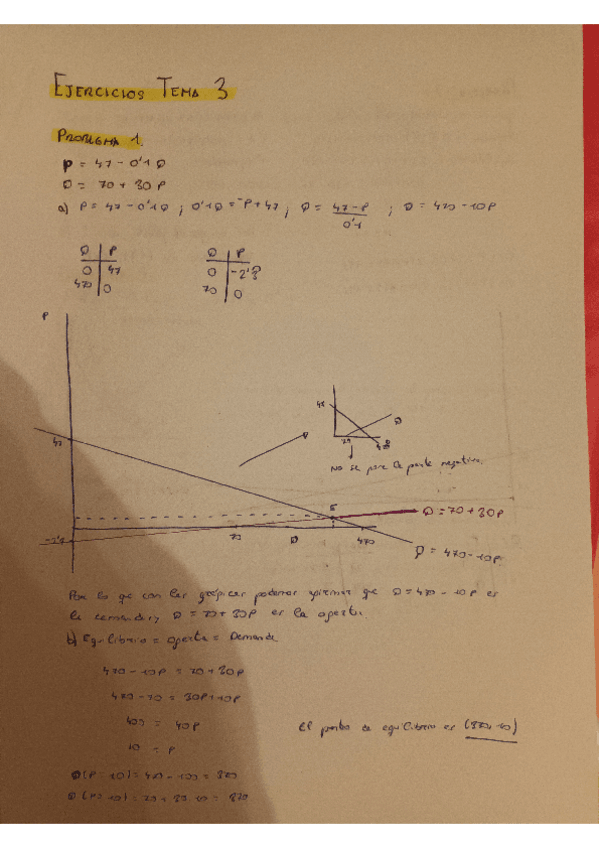 EJERCICIOS TEMA 3
PROBLEMA 1.
P = 47 - 0'1Q
Q = 70 + 30P
a) P = 47 - 0'1Q ; 0'1Q = -P + 47 ; Q = 47-P / 0'1 ; Q = 470 - 10P
Q | P
0 | 47
470 | 0
Q | P
0 | -2'3
70 | 0
P
47
Q
70
No se pone la parte negativa.
47
E
Q = 70 + 30P
-2'3
70
Q
470
Q = 470 - 10P
Por lo que con las gráficas podemos afirmar que Q = 470 - 10P es
la demanda y Q = 70 + 30P es la oferta.
b) Equilibrio = oferta = Demanda
470 - 10P = 70 + 30P
470 - 70 = 30P + 10P
400 = 40P
10 = P
El punto de equilibrio es (370, 10)
Q (P = 10) = 470 - 100 = 370
Q (P = 10) = 70 + 30·10 = 370